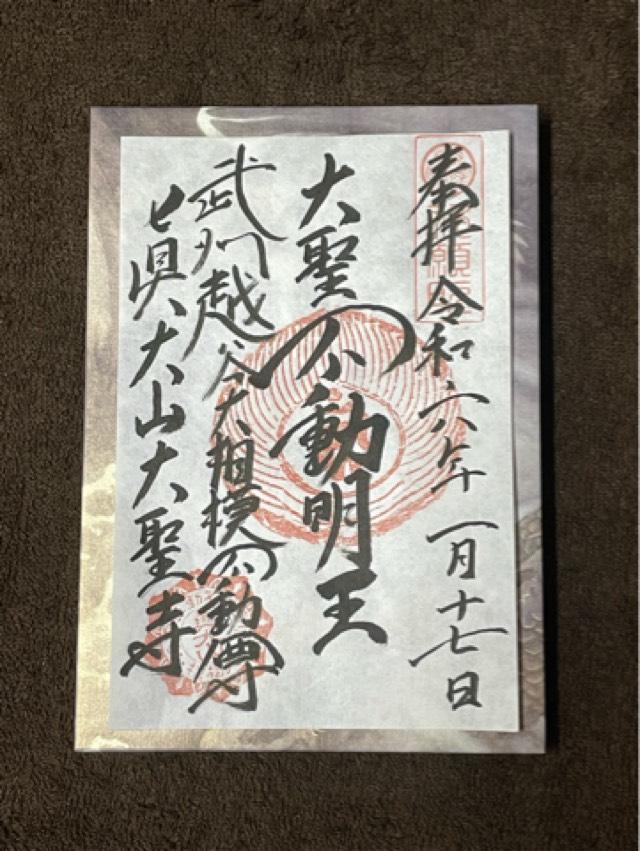 奉拝 令和六年一月十七日
大聖不動明王
武州越谷大相模不動尊
真大山大聖寺